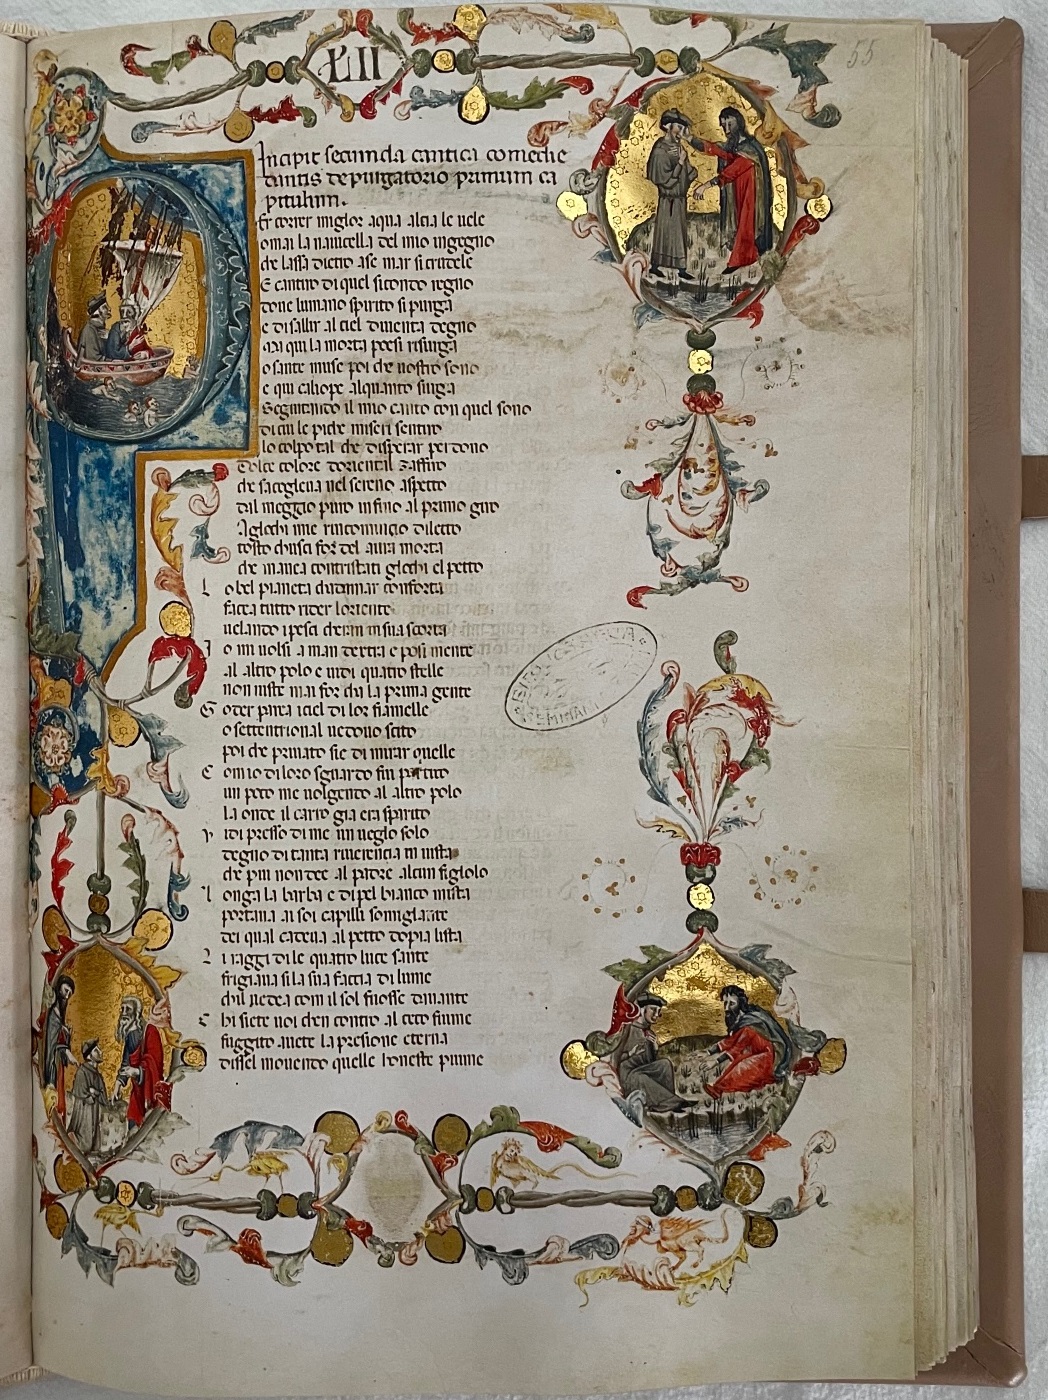 LII
55
Incipit secunda cantica comedie
dantis de purgatorio primum ca
pitulum.
Per correr miglor aqua alça le uele
omai la nauicella del mio ingegno
che lassa dietro a se mar si crudele
E cantero di quel secondo regno
doue lumano spirito si purga
e di sallir al ciel diuenta degno
Ma qui la morta poesi risurga
o sante muse poi che uostro sono
e qui caliope alquanto surga
Seguitando il mio canto con quel sono
di cui le piche misere sentiro
lo colpo tal che disperar perdono
Dolce colore doriental zaffiro
che sacoglieua nel sereno aspetto
dal meggio puro infino al primo giro
Agliochi mie rincomincio diletto
tosto chusci for del aura morta
che mauea contristati gliochi el petto
Lo bel pianeta chadamar conforta
facea tutto rider loriente
uelando i pesci cheran in sua scorta
Io mi uolsi a man destra e posi mente
al altro polo e uidi quatro stelle
non uiste mai for cha la prima gente
Goder parea iciel di lor fiamelle
o settentrional uedouo scito
poi che priuato sie di mirar quelle
Com io di loro sguardo fui partito
un poco me uolgendo al altro polo
la onde il carro gia era sparito
Vidi presso di me un ueglo solo
degno di tanta riuerenza in uista
che piu non dee al padre alcun figlolo
Longa la barba e di pel bianco mista
portaua ai soi capilli somiglante
dei qual cadeua al petto dopia lista
Li raggi di le quatro luce sante
fregiaua si la sua faccia di lume
chil uedea com il sol fuosse dauante
Chi siete uoi chen contro al ceco fiume
fuggito auete la presione eterna
dissel mouendo quelle honeste piume